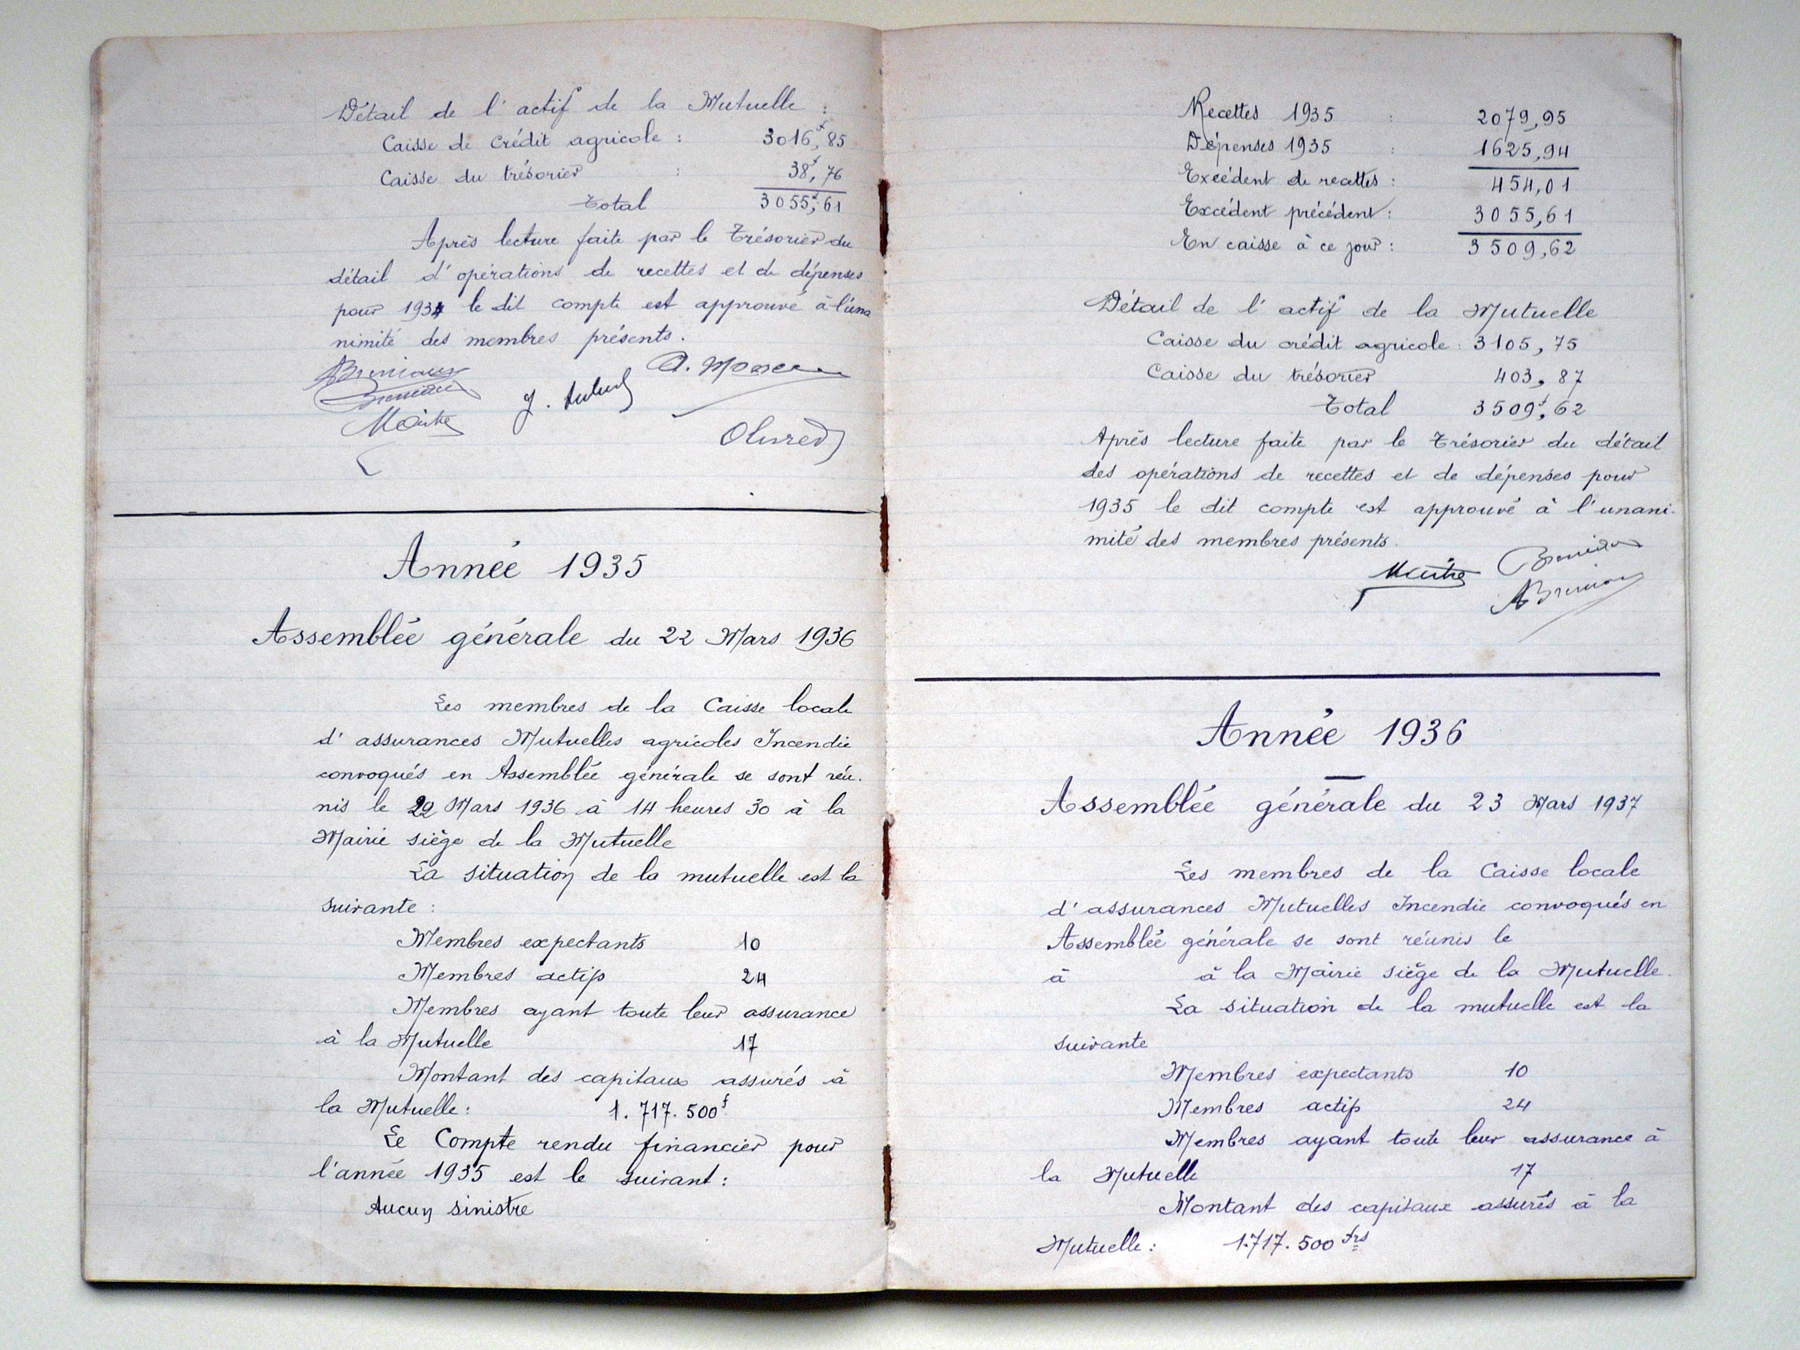 Détail de l'actif de la Mutuelle :
Caisse de crédit agricole : 3016f,85
Caisse du trésorier : 38f,76
Total 3055f,61
Après lecture faite par le Trésorier du
détail d'opérations de recettes et de dépenses
pour 1934 le dit compte est approuvé à l'una
nimité des membres présents.
Année 1935
Assemblée générale du 22 Mars 1936
Les membres de la Caisse locale
d'assurances Mutuelles agricoles Incendie
convoqués en Assemblée générale se sont réu-
nis le 22 Mars 1936 à 14 heures 30 à la
Mairie siège de la Mutuelle
La situation de la mutuelle est la
suivante :
Membres expectants 10
Membres actifs 24
Membres ayant toute leur assurance
à la Mutuelle 17
Montant des capitaux assurés à
la Mutuelle : 1.717.500f
Le Compte rendu financier pour
l'année 1935 est le suivant :
Aucun sinistre
Recettes 1935 : 2079,95
Dépenses 1935 : 1625,94
Excédent de recettes : 454,01
Excédent précédent : 3055,61
En caisse à ce jour : 3509,62
Détail de l'actif de la Mutuelle
Caisse du crédit agricole : 3105,75
Caisse du trésorier 403,87
Total 3509f,62
Après lecture faite par le Trésorier du détail
des opérations de recettes et de dépenses pour
1935 le dit compte est approuvé à l'unani-
mité des membres présents.
Année 1936
Assemblée générale du 23 Mars 1937
Les membres de la Caisse locale
d'assurances Mutuelles Incendie convoqués en
Assemblée générale se sont réunis le
à à la Mairie siège de la Mutuelle.
La situation de la mutuelle est la
suivante
Membres expectants 10
Membres actifs 24
Membres ayant toute leur assurance à
la Mutuelle 17
Montant des capitaux assurés à la
Mutuelle : 1.717.500 frs